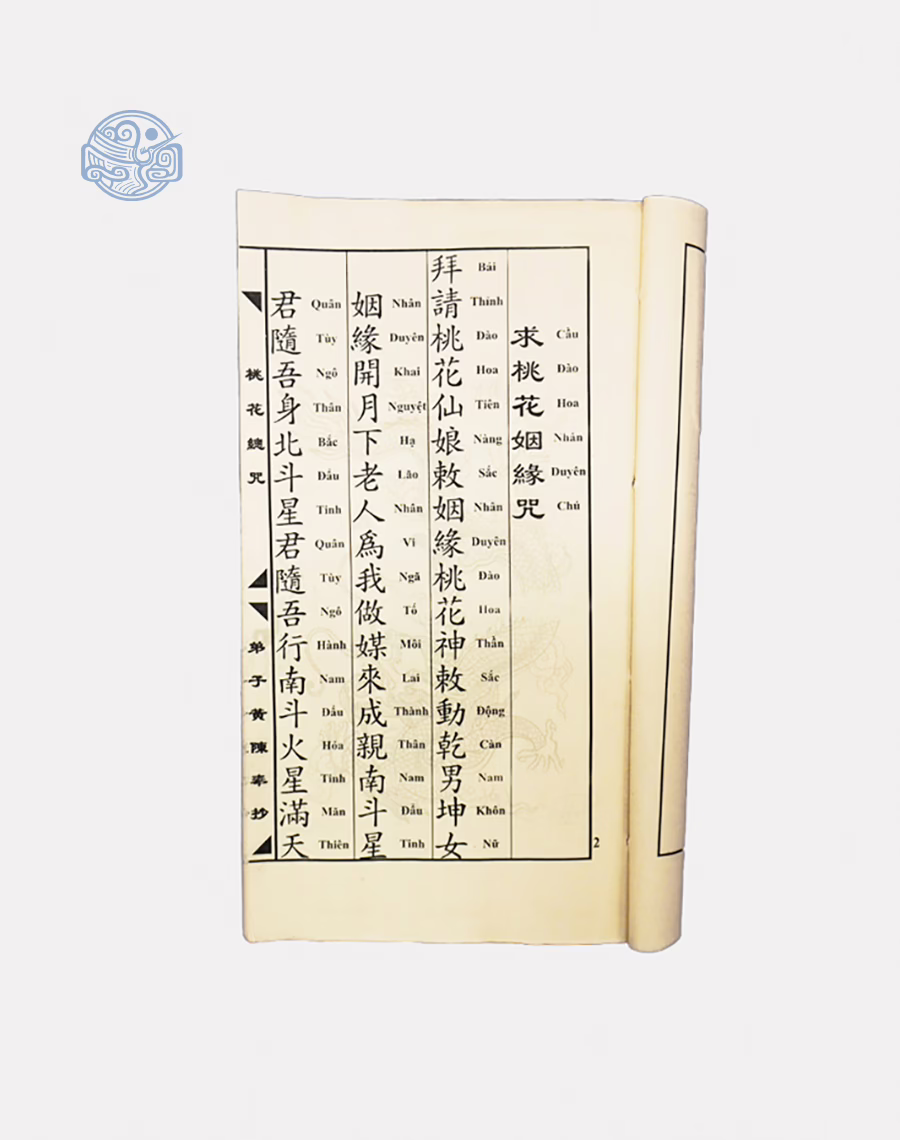 求桃花姻緣咒
Cầu Đào Hoa Nhân Duyên Chú
拜請桃花仙娘敕姻緣桃花神敕動乾男坤女
Bái Thỉnh Đào Hoa Tiên Nàng Sắc Nhân Duyên Đào Hoa Thần Sắc Động Càn Nam Khôn Nữ
姻緣開月下老人爲我做媒來成親南斗星
Nhân Duyên Khai Nguyệt Hạ Lão Nhân Vi Ngã Tố Môi Lai Thành Thân Nam Đẩu Tinh
君隨吾身北斗星君隨吾行南斗火星滿天
Quân Tùy Ngô Thân Bắc Đẩu Tinh Quân Tùy Ngô Hành Nam Đẩu Hỏa Tinh Mãn Thiên
桃花總咒
弟子黃陳奉抄
2